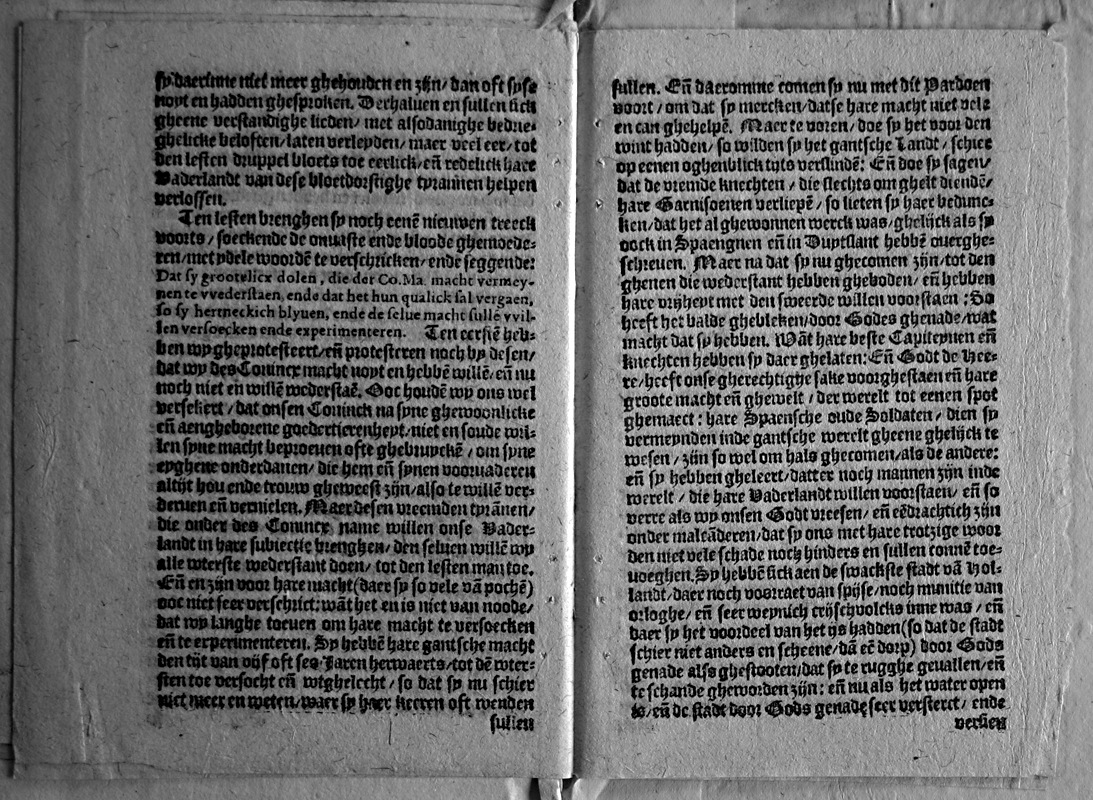 sy daerinne niet meer ghehouden en zijn/ dan oft syse
noyt en hadden ghesproken. Derhaluen en sullen sick
gheene verstandighe lieden/ met alsodanighe bedrie-
ghelicke beloften/ laten verleyden/ maer veel eer/ tot
den lesten druppel bloets toe eerlick/ eñ redelick hare
Vaderlandt van dese bloetdorstighe tyrannen helpen
verlossen.
Ten lesten brenghen sy noch eenē nieuwen treeck
voorts/ soeckende de onuaste ende bloode ghemoede-
ren/ met ydele woordē te verschricken/ ende seggende:
Dat sy grootelicx dolen, die der Co.Ma. macht vermey-
nen te vvederstaen, ende dat het hun qualick sal vergaen,
so sy hertneckich blyuen, ende de selue macht sullē vvil-
len versoecken ende experimenteren. Ten eersten heb-
ben wy gheprotesteert/ eñ protesteren noch by desen/
dat wy des Conincx macht noyt en hebbē willē/ eñ nu
noch niet en willē wederstaē. Ooc houdē wy ons wel
versekert/ dat onsen Coninck na syne ghewoonlicke
eñ aengheborene goedertierenheyt/ niet en soude wil-
len syne macht beproeuen ofte ghebruyckē/ om syne
eyghene onderdanen/ die hem eñ synen vooruaderen
altijt hou ende trouw gheweest zijn/ also te willē ver-
deruen eñ vernielen. Maer desen vreemden tyrānen/
die onder des Conincx name willen onse Vader-
landt in hare subiectie brenghen/ den seluen willē wy
alle wterste wederstant doen/ tot den lesten man toe.
Eñ en zijn voor hare macht (daer sy so vele vā pochē)
ooc niet seer verschrict: wāt het en is niet van noode/
dat wy langhe toeuen om hare macht te versoecken
eñ te experimenteren. Sy hebbē hare gantsche macht
den tijt van vijf oft ses Jaren herwaerts/ tot dē wter-
sten toe versocht eñ wtghelecht/ so dat sy nu schier
niet meer en weten/ waer sy haer keeren oft wenden
sullen
sullen. Eñ daeromme comen sy nu met dit Pardoen
voort/ om dat sy mercken/ datse hare macht niet vele
en can ghehelpē. Maer te voren/ doe sy het voor den
wint hadden/ so wilden sy het gantsche Landt/ schier
op eenen oghenblick tyts verslindē: Eñ doe sy sagen/
dat de vremde knechten/ die slechts om ghelt diendē/
hare Garnisoenen verliepē/ so lieten sy haer bedunc-
ken/ dat het al ghewonnen werck was/ ghelijck als sy
oock in Spaengnen eñ in Duytslant hebbē ouerghe-
schreuen. Maer na dat sy nu ghecomen zijn/ tot den
ghenen die wederstant hebben gheboden/ eñ hebben
hare vrijheyt met den sweerde willen voorstaen: So
heeft het balde ghebleken/ door Godes ghenade/ wat
macht dat sy hebben. Wāt hare beste Capiteynen eñ
knechten hebben sy daer ghelaten: Eñ Godt de Hee-
re/ heeft onse gherechtighe sake voorghestaen eñ hare
groote macht eñ ghewelt/ der werelt tot eenen spot
ghemaect: hare Spaensche oude Soldaten/ dien sy
vermeynden inde gantsche werelt gheene ghelijck te
wesen/ zijn so wel om hals ghecomen/ als de andere:
eñ sy hebben gheleert/ datter noch mannen zijn inde
werelt/ die hare Vaderlandt willen voorstaen/ eñ so
verre als wy onsen Godt vreesen/ eñ eēdrachtich zijn
onder malcāderen/ dat sy ons met hare trotzige woor
den niet vele schade noch hinders en sullen connē toe-
uoeghen. Sy hebbē sick aen de swackste stadt vā Hol-
landt/ daer noch voorraet van spijse/ noch munitie van
orloghe/ eñ seer weynich crijschvolcks inne was/ eñ
daer sy het voordeel van het ijs hadden (so dat de stadt
schier niet anders en scheene/ dā eē dorp) door Gods
genade also ghestooten/ dat sy te rugghe geuallen/ eñ
te schande gheworden zijn: eñ nu als het water open
is/ eñ de stadt door Gods genade seer verstert/ ende
versien